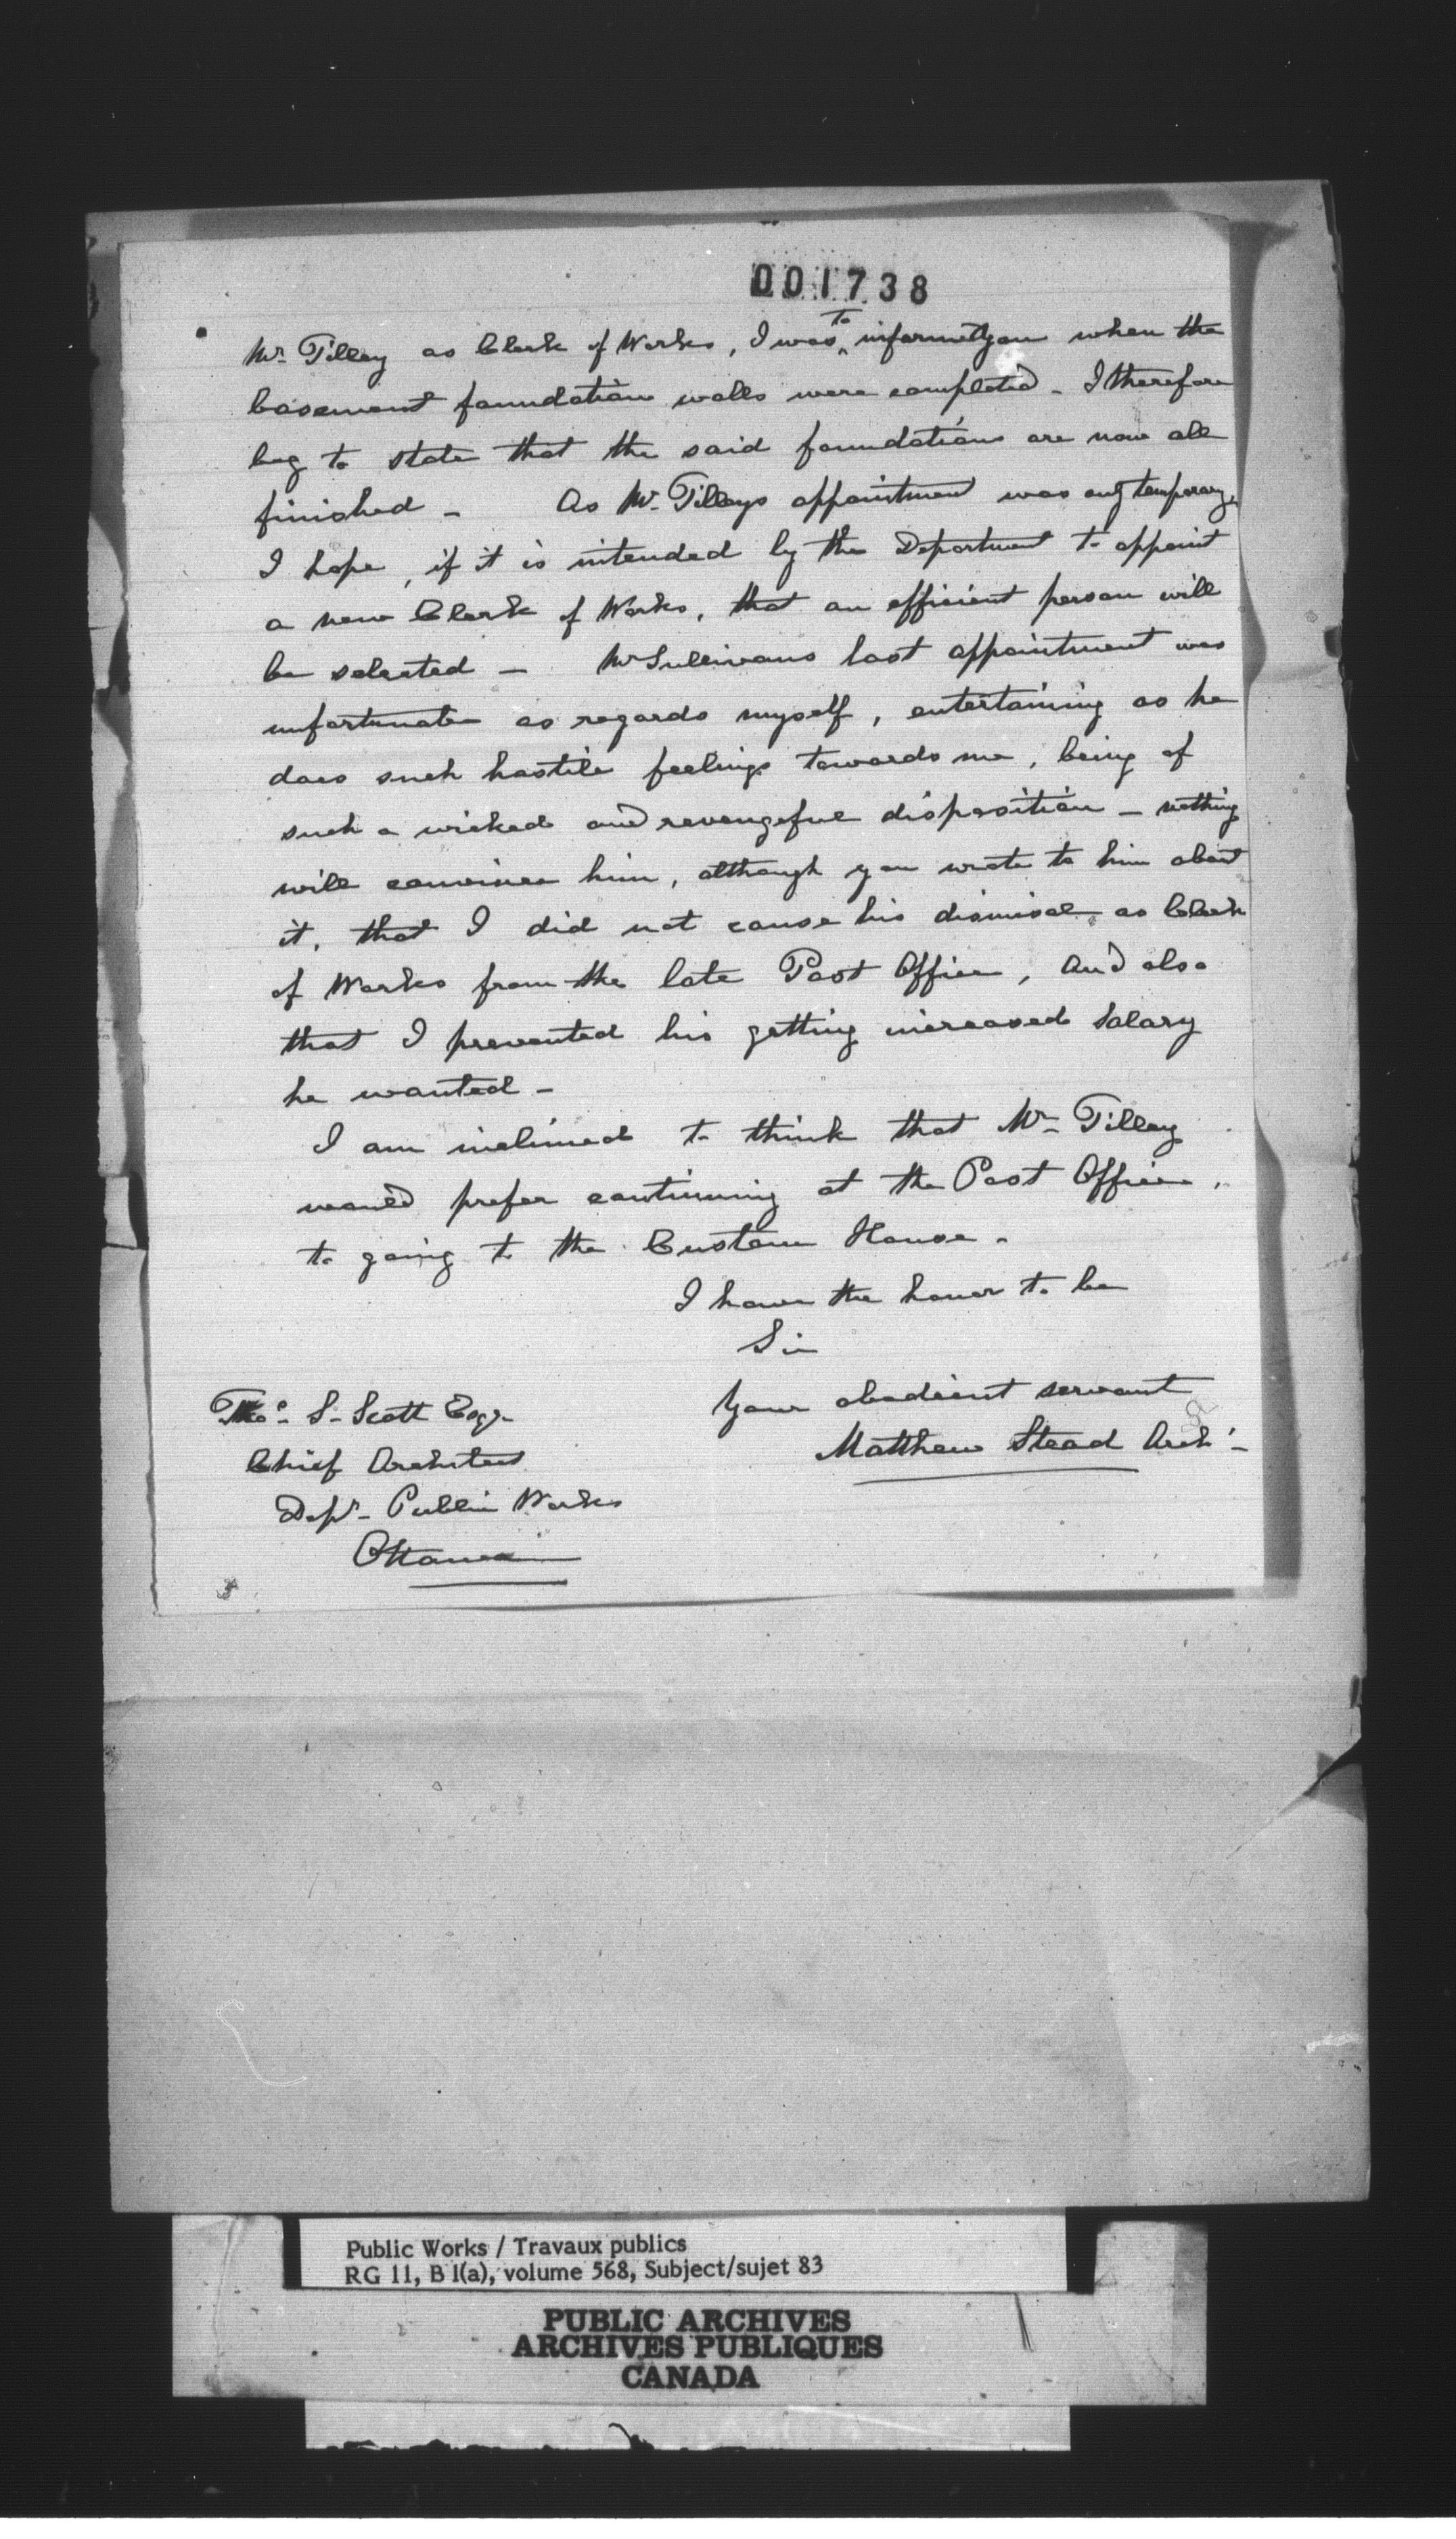 001738
Mr. Tilley as Clerk of Works, I was to inform you when the
basement foundation walls were completed - I therefore
beg to state that the said foundations are now all
finished - As Mr. Tilleys appointment was only temporary,
I hope, if it is intended by the Department to appoint
a new Clerk of Works, that an efficient person will
be selected - Mr Sullivans last appointment was
unfortunate as regards myself, entertaining as he
does such hostile feelings towards me, being of
such a wicked and revengeful disposition - nothing
will convince him, although you wrote to him about
it, that I did not cause his dismisal as Clerk
of Works from the late Post Office, and also
that I prevented his getting increased salary
he wanted -
I am inclined to think that Mr. Tilley
would prefer continuing at the Post Office,
to going to the Custom House.
I have the honor to be
Sir
Your obedient servant
Matthew Stead Archt.
Thos. S. Scott Esqr.
Chief Architect
Dept. Public Works
Ottawa
Public Works / Travaux publics
RG 11, B 1(a), volume 568, Subject/sujet 83
PUBLIC ARCHIVES
ARCHIVES PUBLIQUES
CANADA